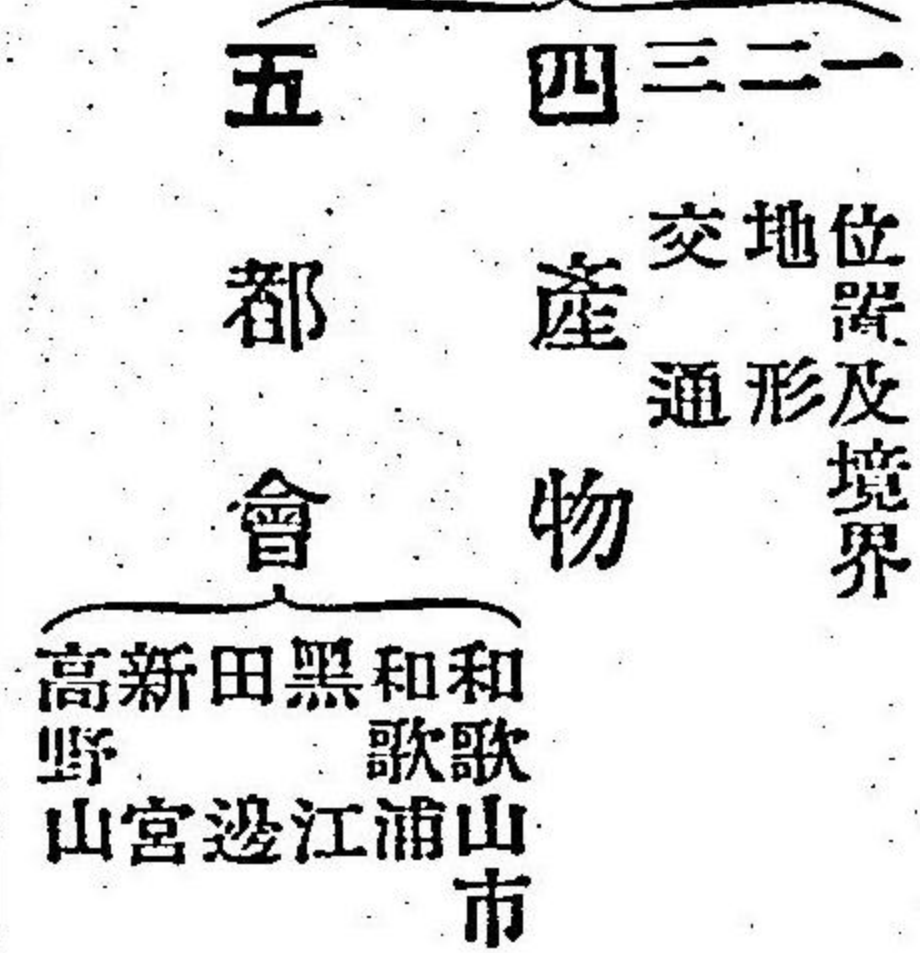 一 位置及境界
二 地形
三 交通
四 產物
五 都會
和歌山市
和歌浦
黑江
田邊
新宮
高野山